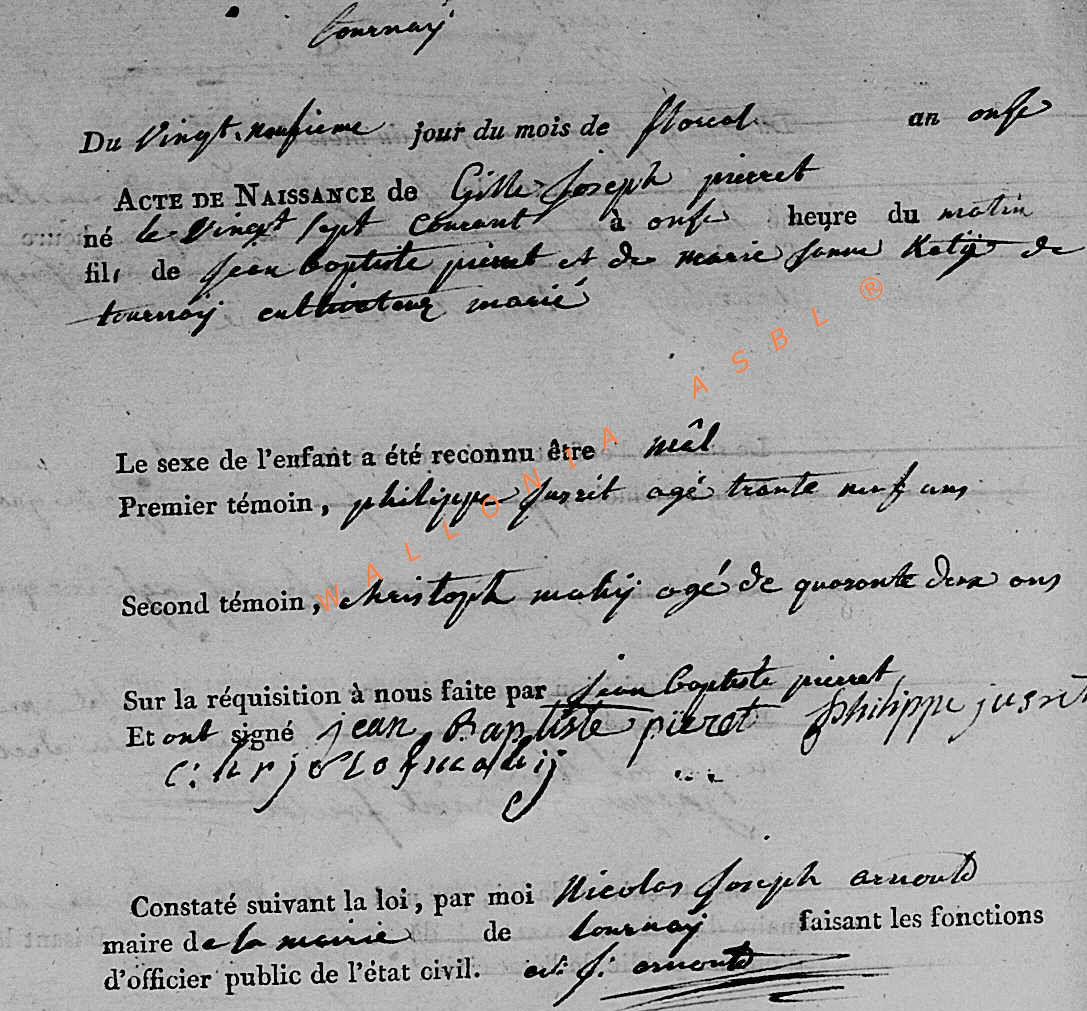 tournay
Du vingt neufieme jour du mois de floreal an onse
ACTE DE NAISSANCE de Gille Joseph pierret
né le vingt sept courant à onse heure du matin
fils de jean baptiste pierret et de marie janne de
tournay cultivateur marié
Le sexe de l'enfant a été reconnu être mâl
Premier témoin, philippe jusrit agé trante neuf ans
Second témoin, christoph mahij agé de quaronte deux ans
Sur la réquisition à nous faite par jean baptiste pierret
Et ont signé jean Baptiste pieret philippe jusrit
Constaté suivant la loi, par moi Nicolas Joseph arnould
maire de la mairie de tournay faisant les fonctions
d'officier public de l'état civil. J. arnould
WALLONIA ASBL ®